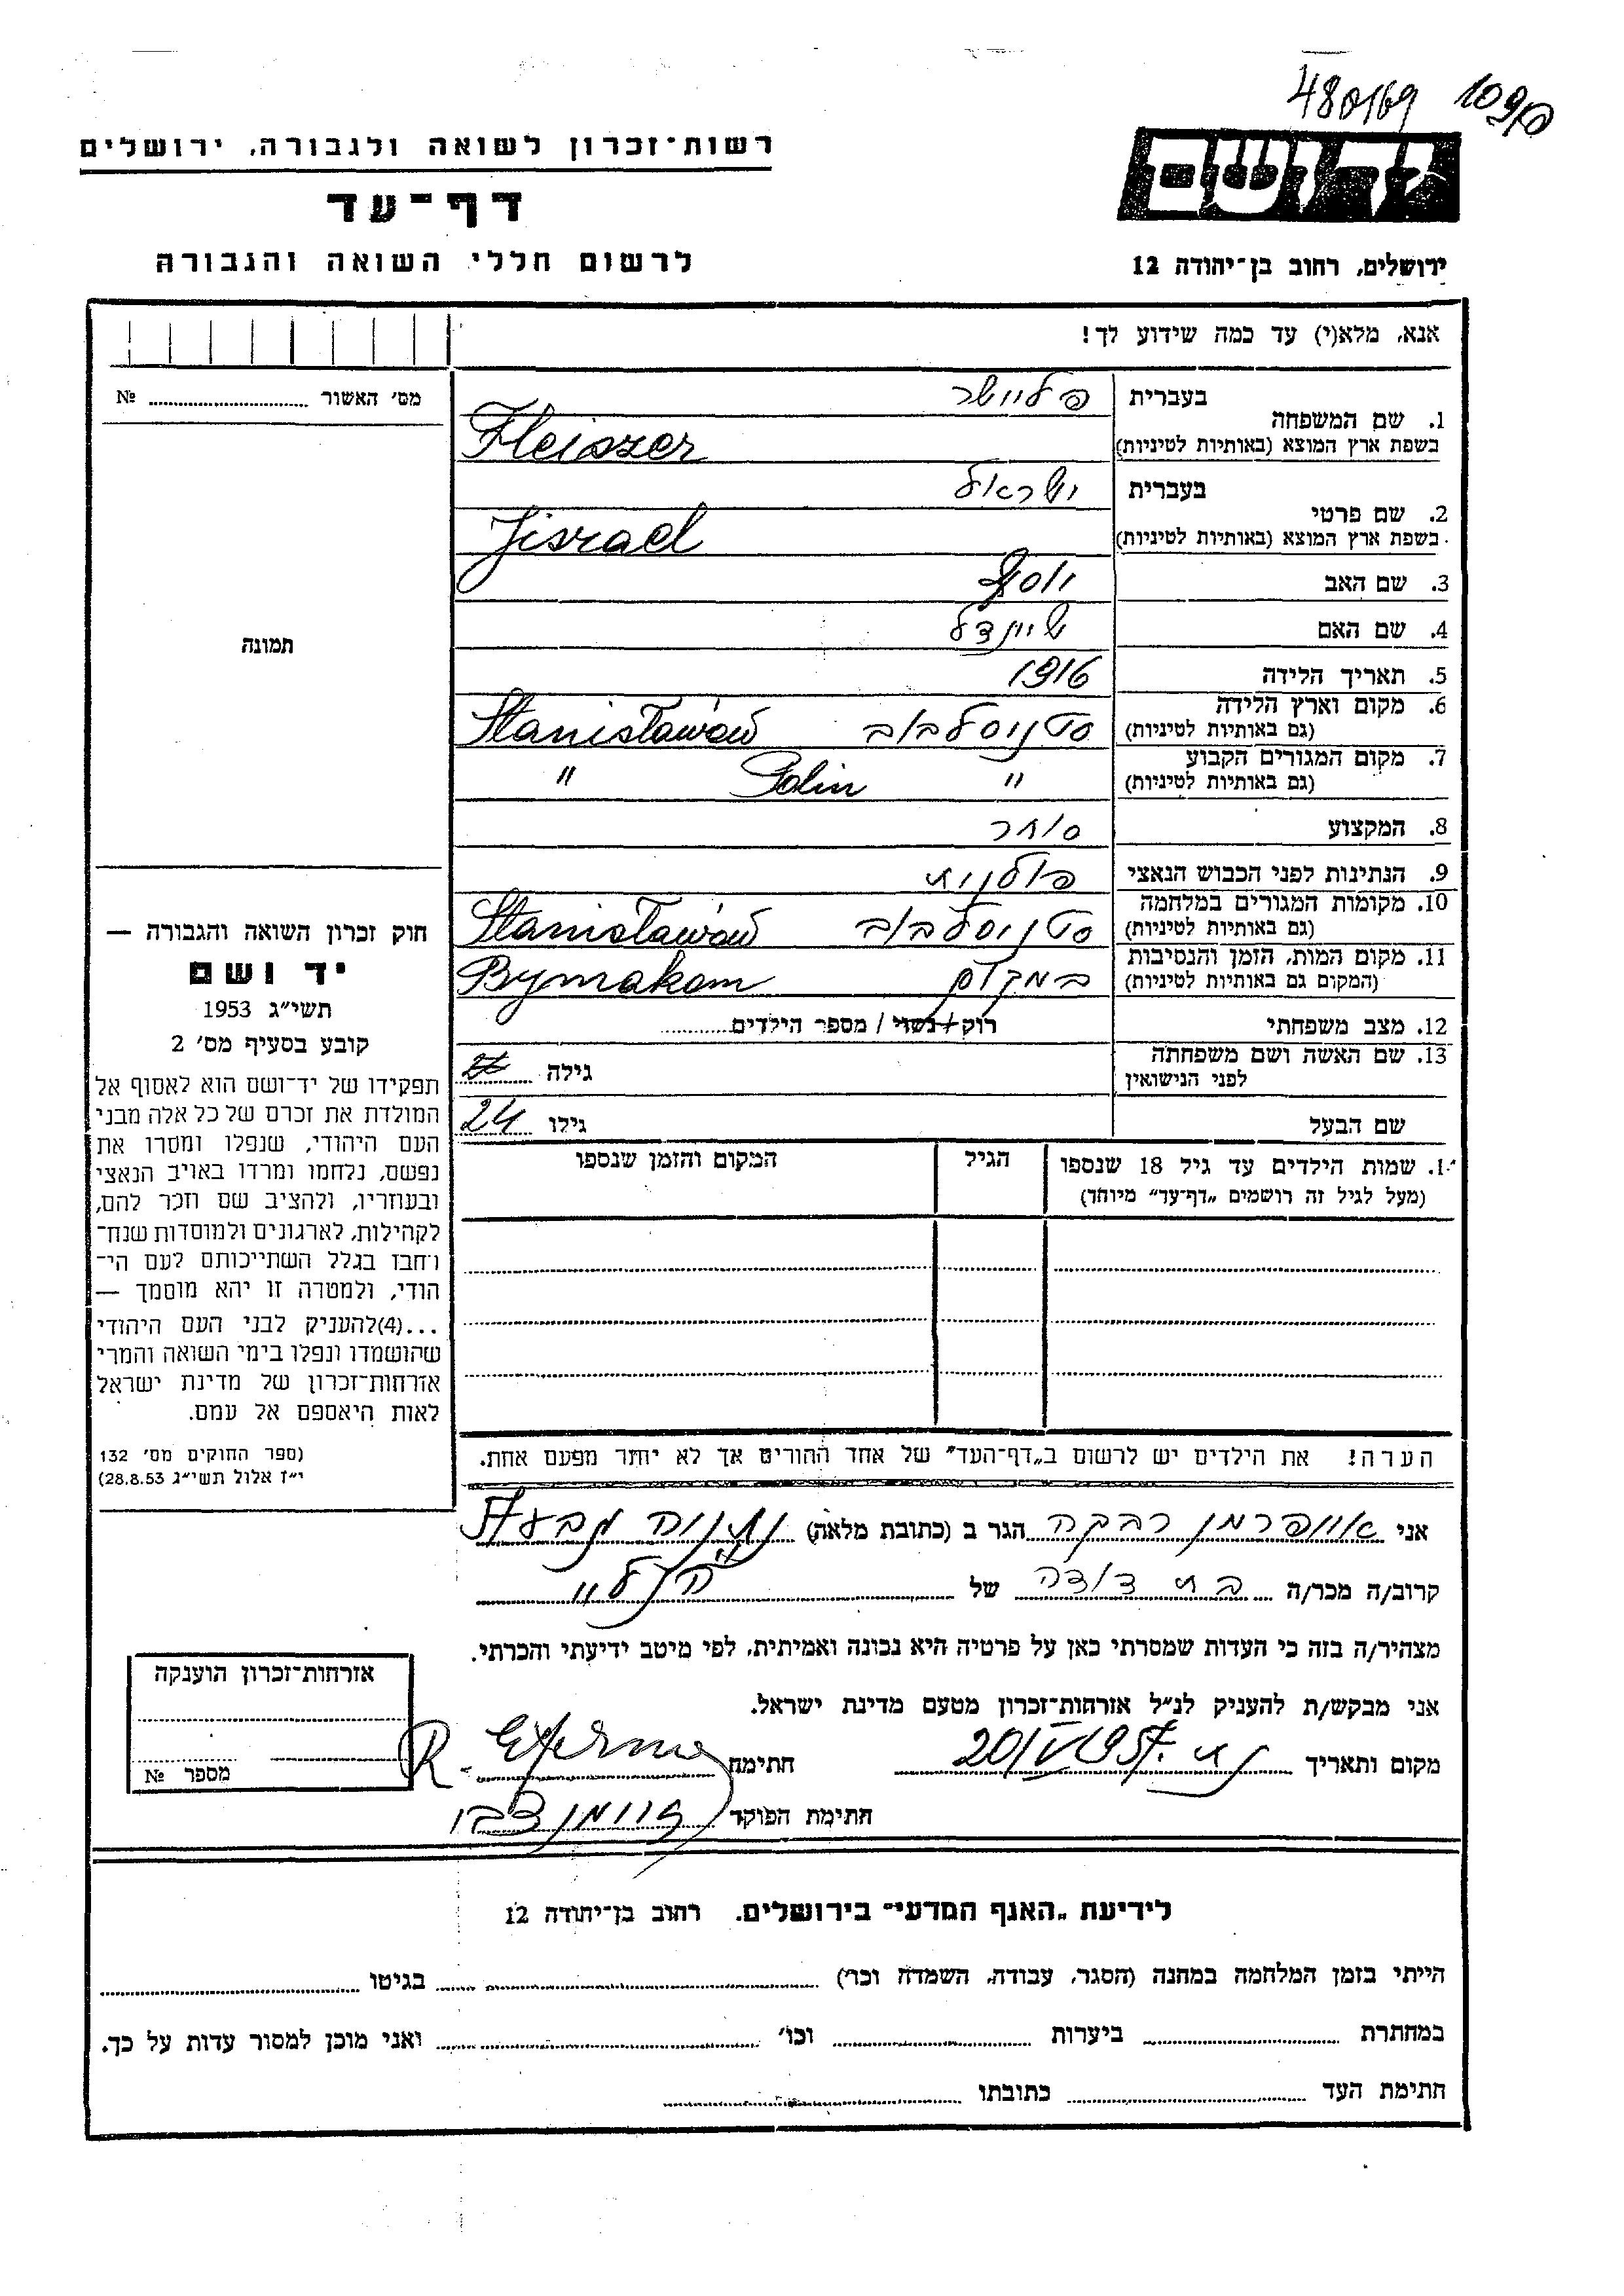 480169
רשות־זכרון לשואה ולגבורה, ירושלים
יד ושם
דף־עד
לרשום חללי השואה והגבורה
ירושלים, רחוב בן־יהודה 12
אנא, מלא(י) עד כמה שידוע לך!
מס׳ האשור № 
1. שם המשפחה בעברית פליישר
בשפת ארץ המוצא (באותיות לטיניות) Fleiszer
2. שם פרטי בעברית ישראל
בשפת ארץ המוצא (באותיות לטיניות) Jisrael
3. שם האב יוסף
4. שם האם שיינדל
5. תאריך הלידה 1916
6. מקום וארץ הלידה (גם באותיות לטיניות) סטניסלבוב Stanisławów
7. מקום המגורים הקבוע (גם באותיות לטיניות) " Polin "
8. המקצוע סוחר
9. הנתינות לפני הכבוש הנאצי פולנית
10. מקומות המגורים במלחמה (גם באותיות לטיניות) סטניסלבוב Stanisławów
11. מקום המות, הזמן והנסיבות (המקום גם באותיות לטיניות) במקום Bymakom
12. מצב משפחתי רוק / נשוי / מספר הילדים
13. שם האשה ושם משפחתה לפני הנישואין גילה
שם הבעל גילו 24
תמונה
חוק זכרון השואה והגבורה —
יד ושם
תשי״ג 1953
קובע בסעיף מס׳ 2
תפקידו של יד־ושם הוא לאסוף אל
המולדת את זכרם של כל אלה מבני
העם היהודי, שנפלו ומסרו את
נפשם, נלחמו ומרדו באויב הנאצי
ובעוזריו, ולהציב שם וזכר להם,
לקהילות, לארגונים ולמוסדות שנח־
רבו בגלל השתייכותם לעם הי־
הודי, ולמטרה זו יהא מוסמך —
...(4) להעניק לבני העם היהודי
שהושמדו ונפלו בימי השואה והמרי
אזרחות־זכרון של מדינת ישראל
לאות היאספם אל עמם.
(ספר החוקים מס׳ 132
י״ז אלול תשי״ג 28.8.53)
1. שמות הילדים עד גיל 18 שנספו
(מעל לגיל זה רושמים „דף־עד” מיוחד)
הגיל
המקום והזמן שנספו
הערה! את הילדים יש לרשום ב„דף־העד” של אחד ההורים אך לא יותר מפעם אחת.
אני אויפרמן רבקה הגר ב (כתובת מלאה) נתניה
קרוב/ה מכר/ה בת דודה של הנ״ל
מצהיר/ה בזה כי העדות שמסרתי כאן על פרטיה היא נכונה ואמיתית, לפי מיטב ידיעתי והכרתי.
אני מבקש/ת להעניק לנ״ל אזרחות־זכרון מטעם מדינת ישראל.
מקום ותאריך 20/V 1957 חתימה R.
חתימת הפוקד
אזרחות־זכרון הוענקה
מספר №
לידיעת „האגף המדעי” בירושלים. רחוב בן־יהודה 12
הייתי בזמן המלחמה במחנה (הסגר, עבודה, השמדה וכו׳) בגיטו
במחתרת ביערות וכו׳ ואני מוכן למסור עדות על כך.
חתימת העד כתובתו